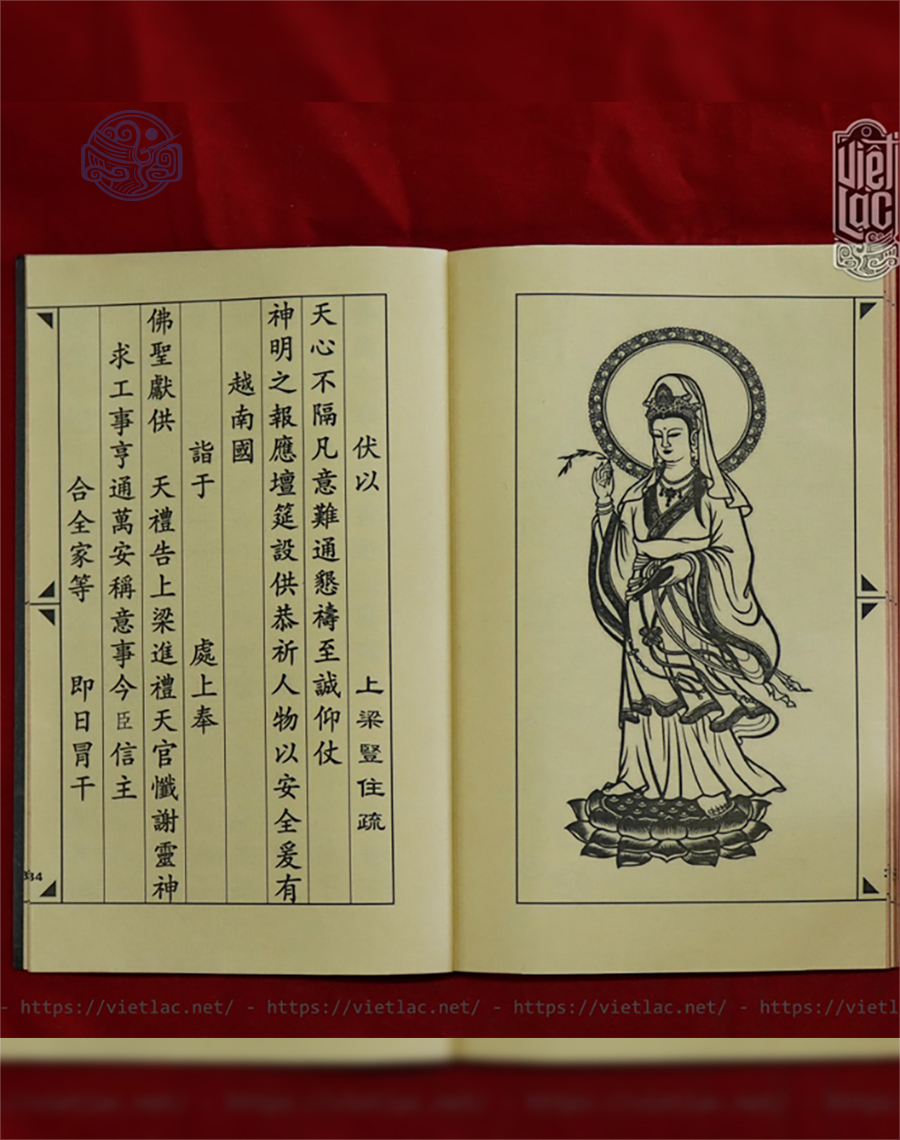 Việt
Lạc
伏以 上梁豎住疏
天心不隔凡意難通懇禱至誠仰仗
神明之報應壇筵設供恭祈人物以安全爰有
越南國
詣于 處上奉
佛聖獻供 天禮告上梁進禮天官懺謝靈神
求工事亨通萬安稱意事今臣信主
合全家等 即日冒干
334
- https://vietlac.net/ - https://vietlac.net/ - https://vietlac.net/ - https://vietl